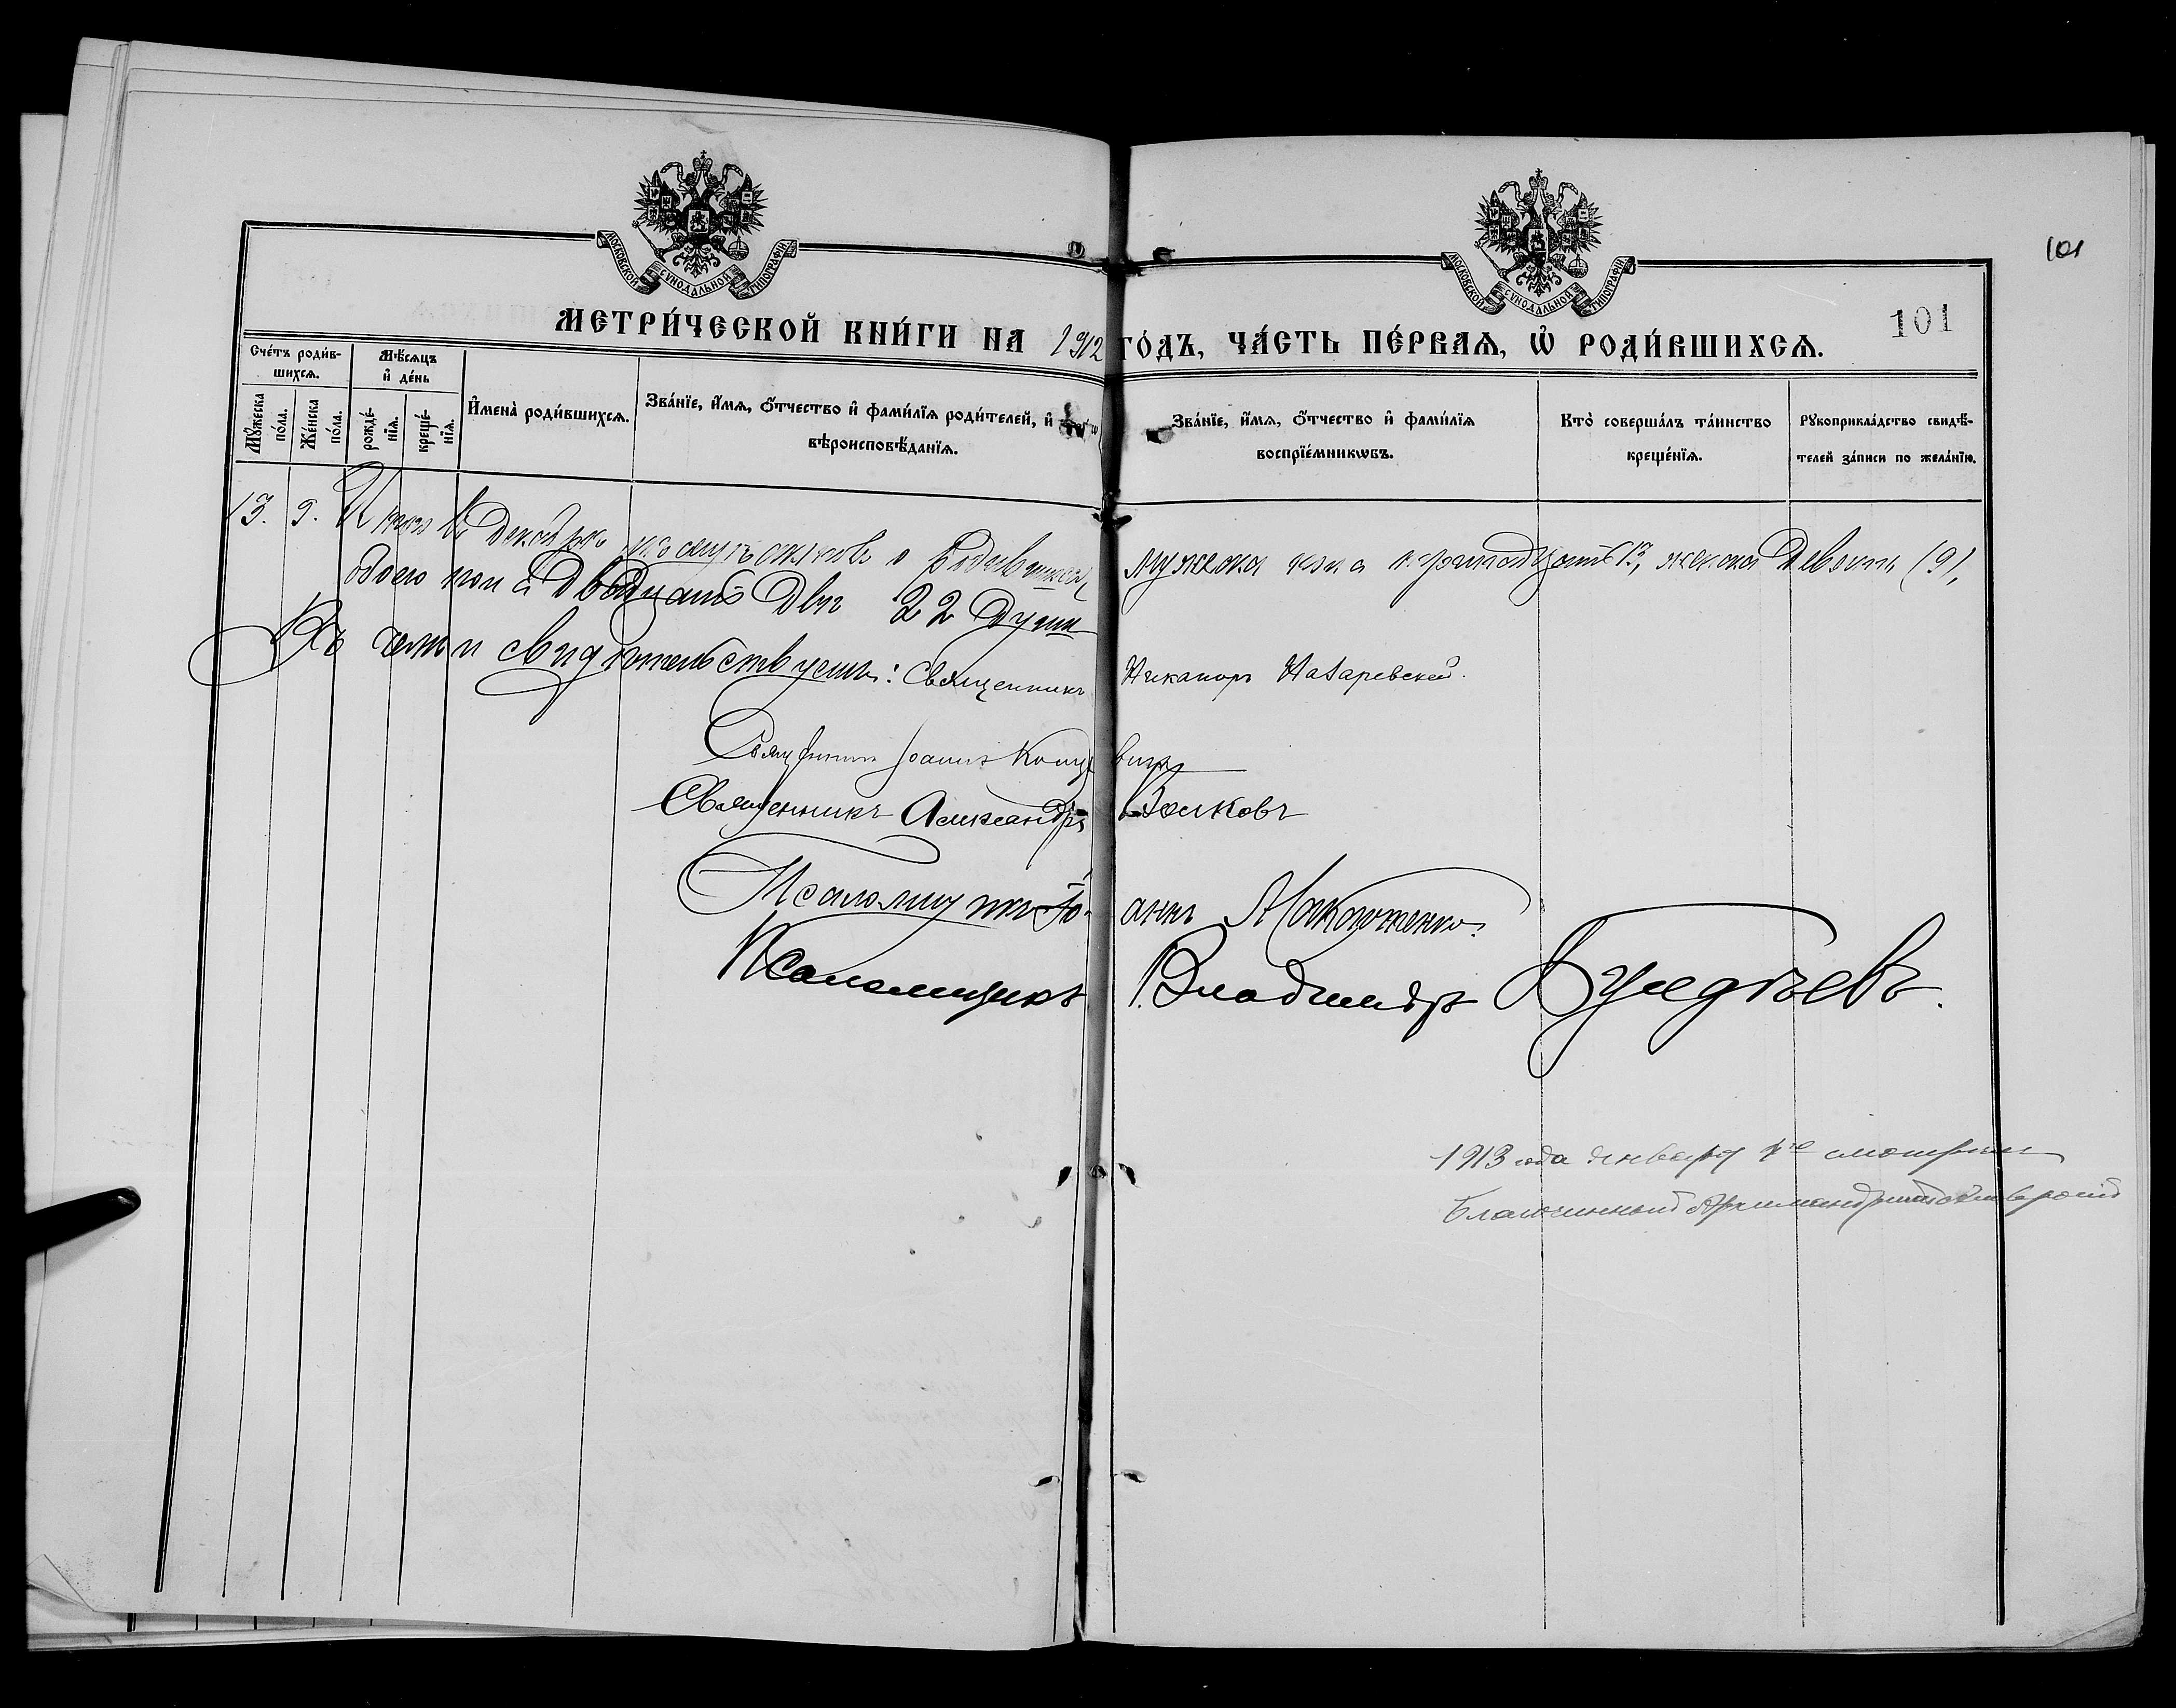 МОСКОВСКОЙ СУНОДАЛЬНОЙ ТИПОГРАФІИ
МОСКОВСКОЙ СУНОДАЛЬНОЙ ТИПОГРАФІИ
101
101
МЕТРИ́ЧЕСКОЙ КНИ́ГИ НА 1912 ГО́ДЪ, ЧА́СТЬ ПЕ́РВАѦ, Ѽ РОДИ́ВШИХСѦ.
Сче́тъ роди́в-
шихсѧ.
Мꙋ́жеска
по́ла.
Же́нска
по́ла.
Мѣ́сѧцъ
и҆ де́нь
рожде́-
нїѧ.
креще́-
нїѧ.
И҆мена̀ роди́вшихсѧ.
Зва́нїе, и҆́мѧ, ѻ҆́тчество и҆ фами́лїѧ роди́телей, и҆
вѣроисповѣ́данїѧ.
Зва́нїе, и҆́мѧ, ѻ҆́тчество и҆ фами́лїѧ
воспрїе́мникѡвъ.
Кто̀ соверша́лъ та́инство
креще́нїѧ.
Рꙋкоприкла́дство свидѣ́-
телей за́писи по жела́нїю.
13. 9. Итого въ Декабрѣ родившихся мужеска пола тринадцать 13, женска девять (9),
обоего пола двадцать двѣ 22 души
Къ сему свидѣтельствуемъ: Священникъ Никаноръ Назаревскій.
Священникъ Іоаннъ
Священникъ Александръ Волковъ
Псаломщикъ Іо-аннъ
Псаломщикъ Владиміръ
1913 года января
Благочинный